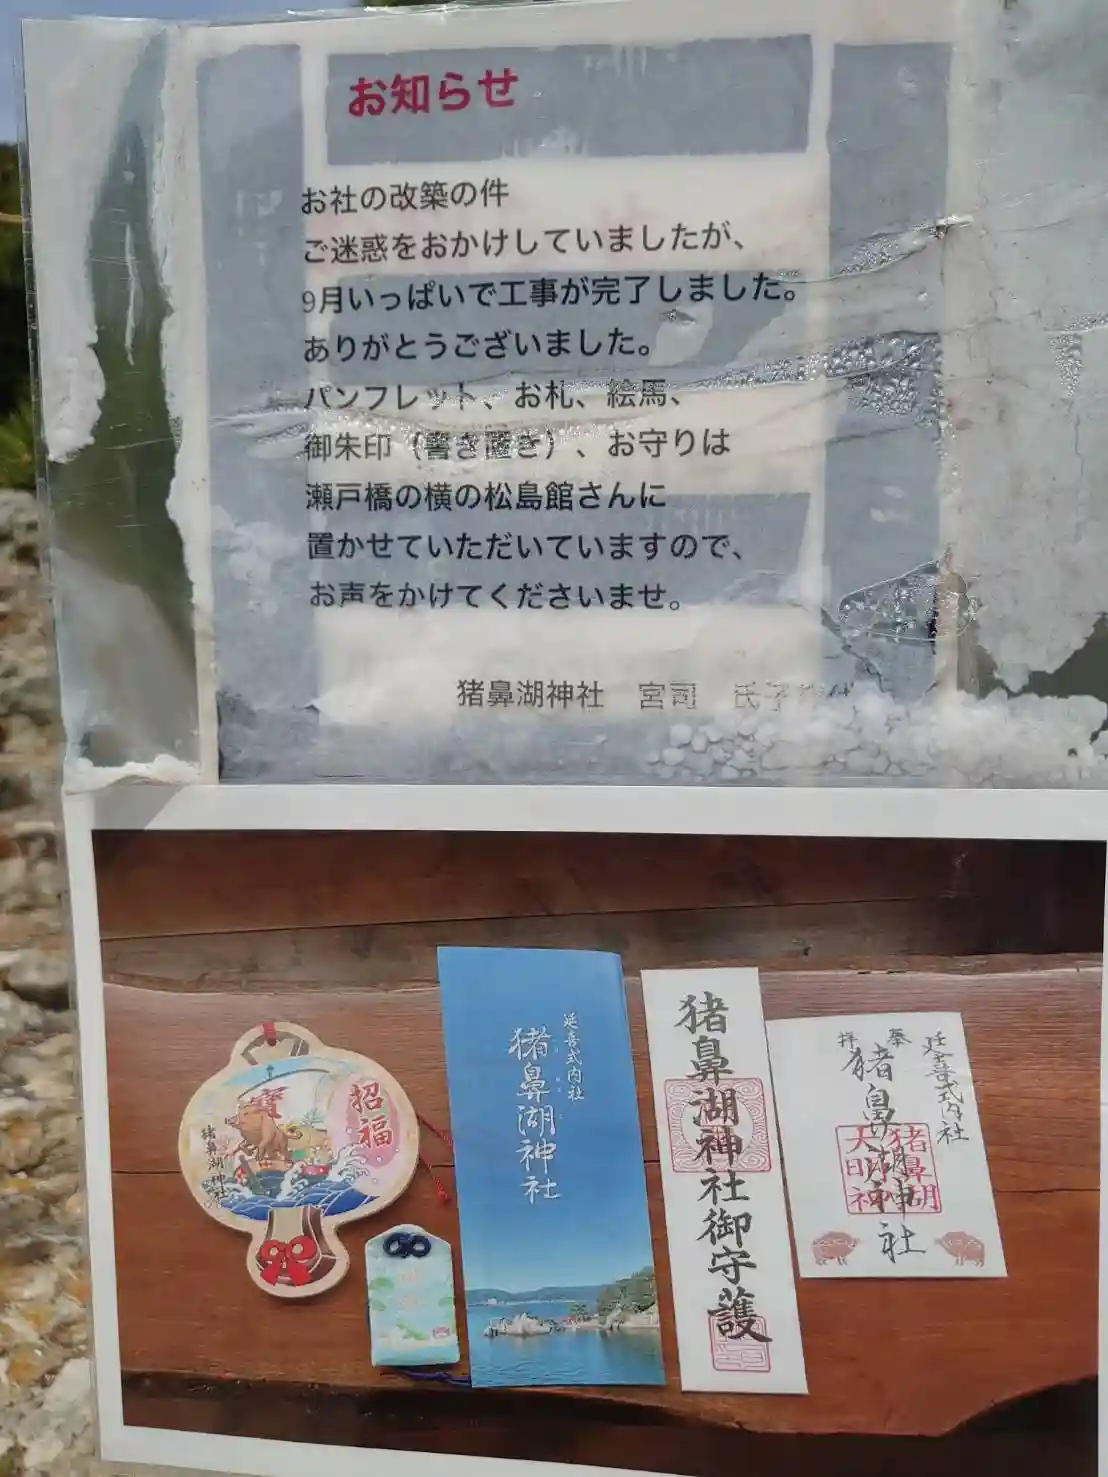 お知らせ
お社の改築の件
ご迷惑をおかけしていましたが、
9月いっぱいで工事が完了しました。
ありがとうございました。
パンフレット、お札、絵馬、
御朱印（書き置き）、お守りは
瀬戸橋の横の松島館さんに
置かせていただいていますので、
お声をかけてくださいませ。
猪鼻湖神社 宮司 氏子総代
招福
寶
猪鼻湖神社
延喜式内社
猪鼻湖神社
猪鼻湖神社御守護
延喜式内社
奉拝
猪鼻湖神社
猪鼻湖
大明神